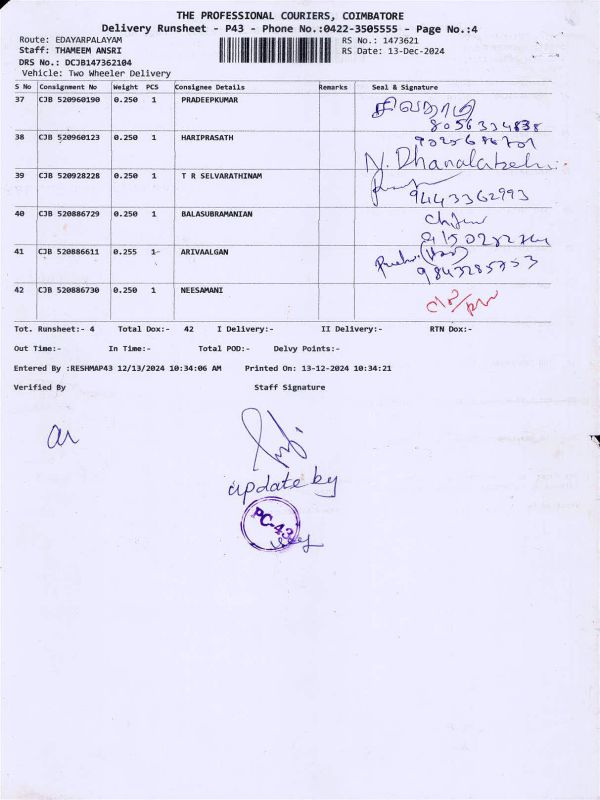 THE PROFESSIONAL COURIERS, COIMBATORE
Delivery Runsheet - P43 - Phone No.:0422-3505555 - Page No.:4
Route: EDAYARPALAYAM
RS No.: 1473621
Staff: THAMEEM ANSRI
RS Date: 13-Dec-2024
DRS No.: DCJB147362104
Vehicle: Two Wheeler Delivery
S No Consignment No Weight PCS Consignee Details Remarks Seal & Signature
37 CJB 520960190 0.250 1 PRADEEPKUMAR
8056334838
38 CJB 520960123 0.250 1 HARIPRASATH
N. Dhanalatchmi
39 CJB 520928228 0.250 1 T R SELVARATHINAM
9443362993
40 CJB 520886729 0.250 1 BALASUBRAMANIAN
41 CJB 520886611 0.255 1 ARIVAALGAN
9843285753
42 CJB 520886730 0.250 1 NEESAMANI
Tot. Runsheet:- 4 Total Dox:- 42 I Delivery:- II Delivery:- RTN Dox:-
Out Time:- In Time:- Total POD:- Delvy Points:-
Entered By :RESHMAP43 12/13/2024 10:34:06 AM Printed On: 13-12-2024 10:34:21
Verified By Staff Signature
update by
PC-43